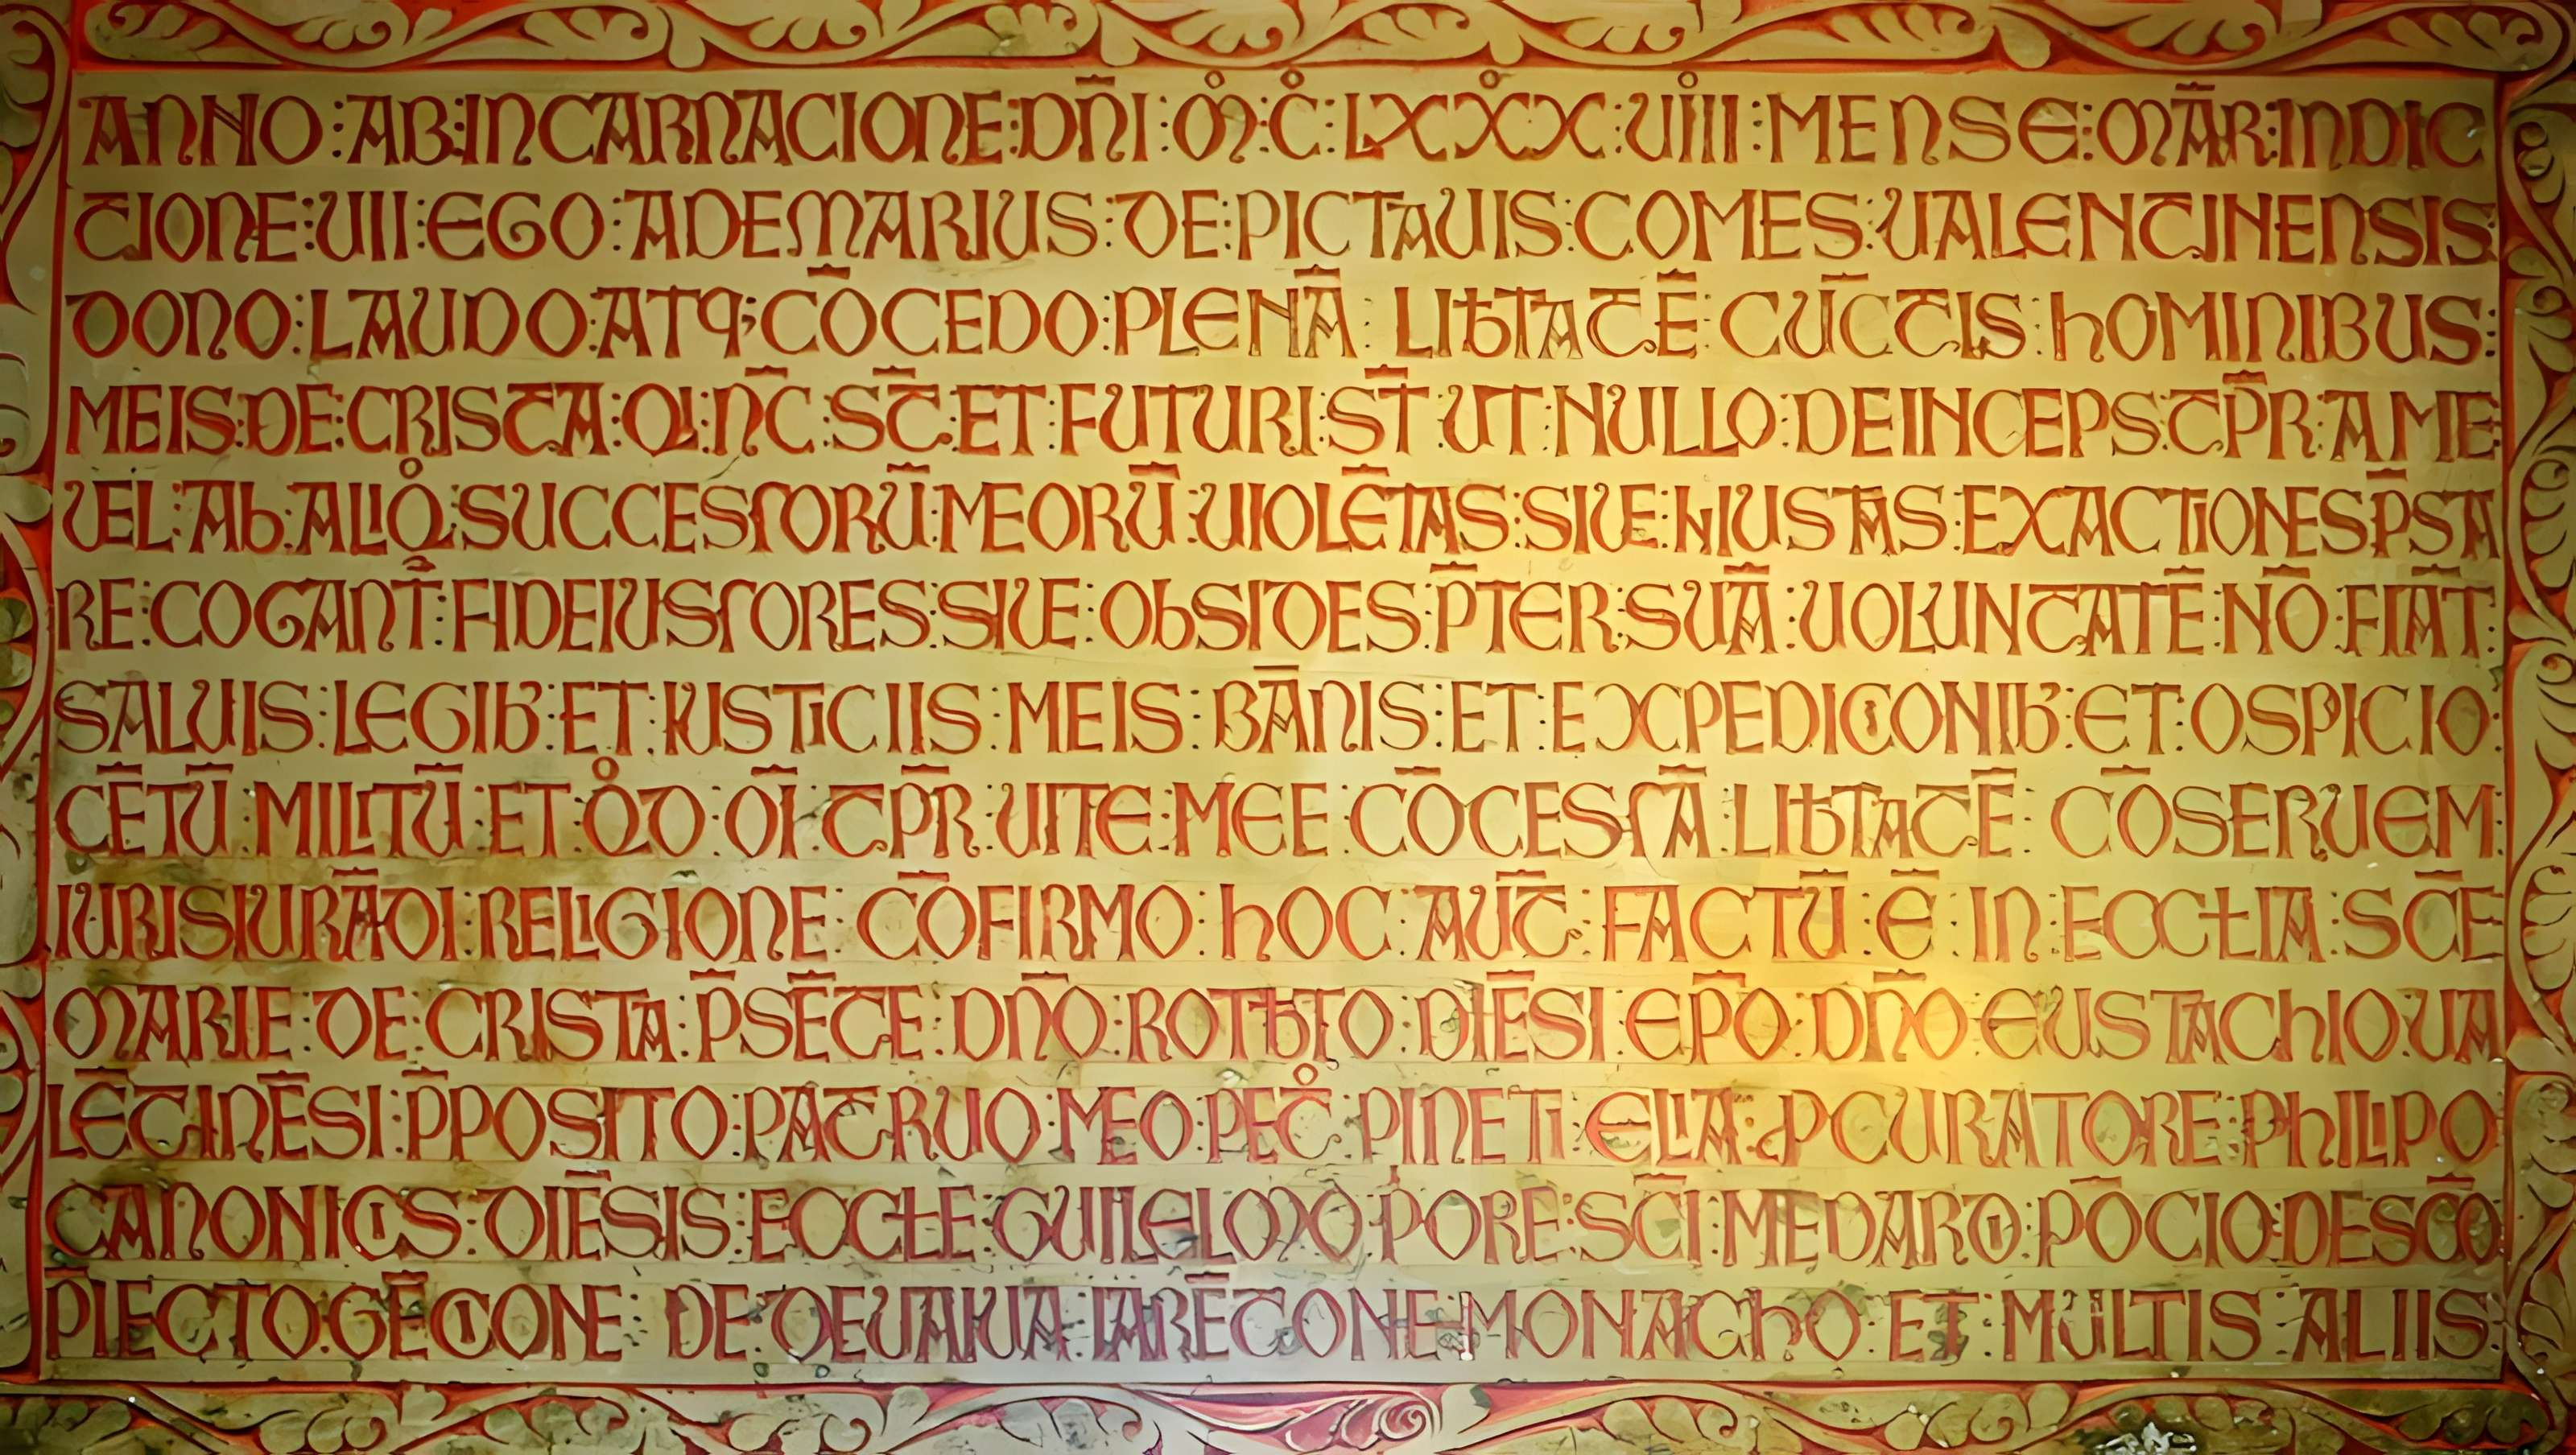 ANNO:AB:INCARNACIONE:DN̄I:M̊:C̊:LXXX̊X:UI̊III:MENSE:MĀR:INDIC
TIONE:UII:EGO:ADEMARIUS:DE:PICTAUIS:COMES:UALENTINENSIS
DONO:LAUDO:ATQ;CŌCEDO:PLENĀ:LIƀTATĒ:CŪCTIS:hOMINIBUS:
MEIS:DE:CRISTA:QI:N̄C:ST̄:ET:FUTURI:ST̄:UT:NULLO:DEINCEPS:TP̄R:A ME
UEL:Ab:ALIQ̊:SUCCESSORŪ:MEORŪ:UIOLĒTAS:SIUE:INIUSTAS:EXACTIONES P̄STA
RE:COGANT̄:FIDEIUSSORES:SIUE:ObSIDES:P̄TER:SUĀ:UOLUNTATĒ:NŌ:FIĀT:
SALUIS:LEGIB:ET:IUSTICIIS:MEIS:BĀNIS:ET:EXPEDICIONIB:ET:OSPICIO:
CĒTŪ:MILITŪ:ET:Q̊D:OĪ:TP̄R:UITE:MEE:CŌCESSĀ:LIƀTATĒ:CŌSERUEM:
IURISIURĀDI:RELIGIONE:CŌFIRMO:hOC:AUT̄:FACTŪ:Ē:IN:ECCŁIA:SC̄E
MARIE:DE:CRISTA:P̄SĒTE:DN̄O:ROTƀTO:DIĒSI:EP̄O:DN̄O:EUSTAChIO:UA
LĒTINĒSI:P̄POSITO:PATRUO:MEO:PET̊:PINETI:ELIA:PCURATORE:PhILIPO
CANONICIS:DIĒSIS:ECCŁE:GUILELMO:PORE:SC̄I:MEDARDI:PŌCIO:DESCŌ
P̄IECTO:GĒCIONE:DE:DEUAIUA:IARĒTONE:MONAChO:ET:MULTIS:ALIIS: